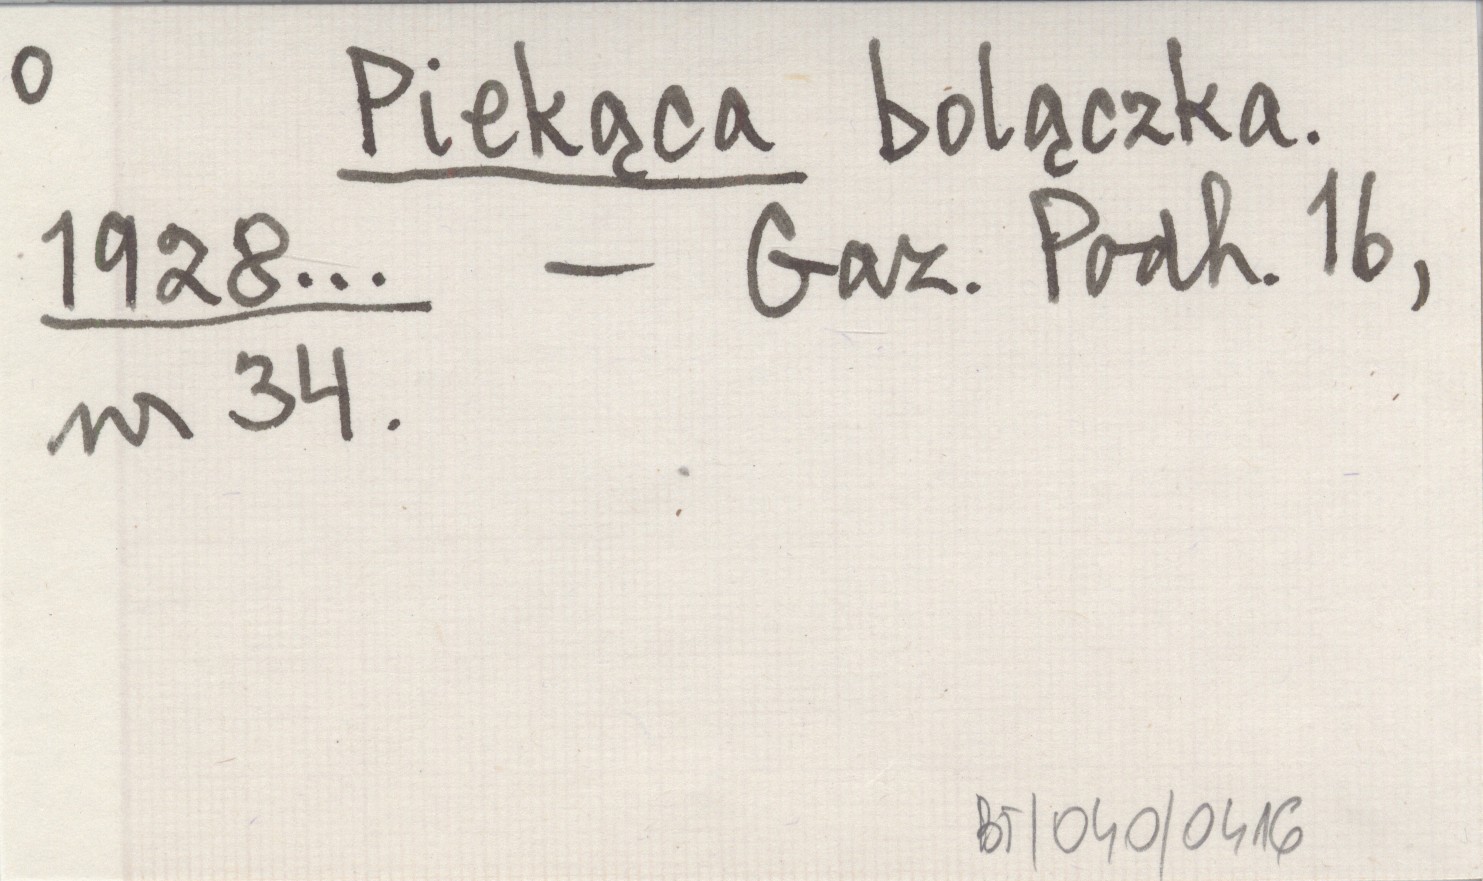 o Piekąca bolączka.
1928... – Gaz. Podh. 16,
nr 34.
BT/040/0416